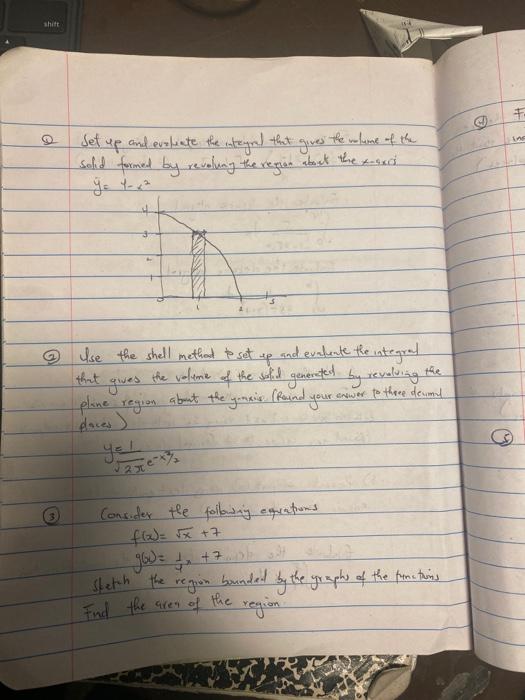 shift
① Set up and evaluate the integral that gives the volume of the
solid formed by revolving the region about the x-axis
y = 4-x²
4
3
2
1
0 1 2 3
② Use the shell method to set up and evaluate the integral
that gives the volume of the solid generated by revolving the
plane region about the y-axis. (Round your answer to three decimal
places)
y = 1/√2π e^-x²/2
③ Consider the following equations
f(x) = √x +7
g(x) = 1/4x +7
Sketch the region bounded by the graphs of the functions
Find the area of the region.
④
⑤